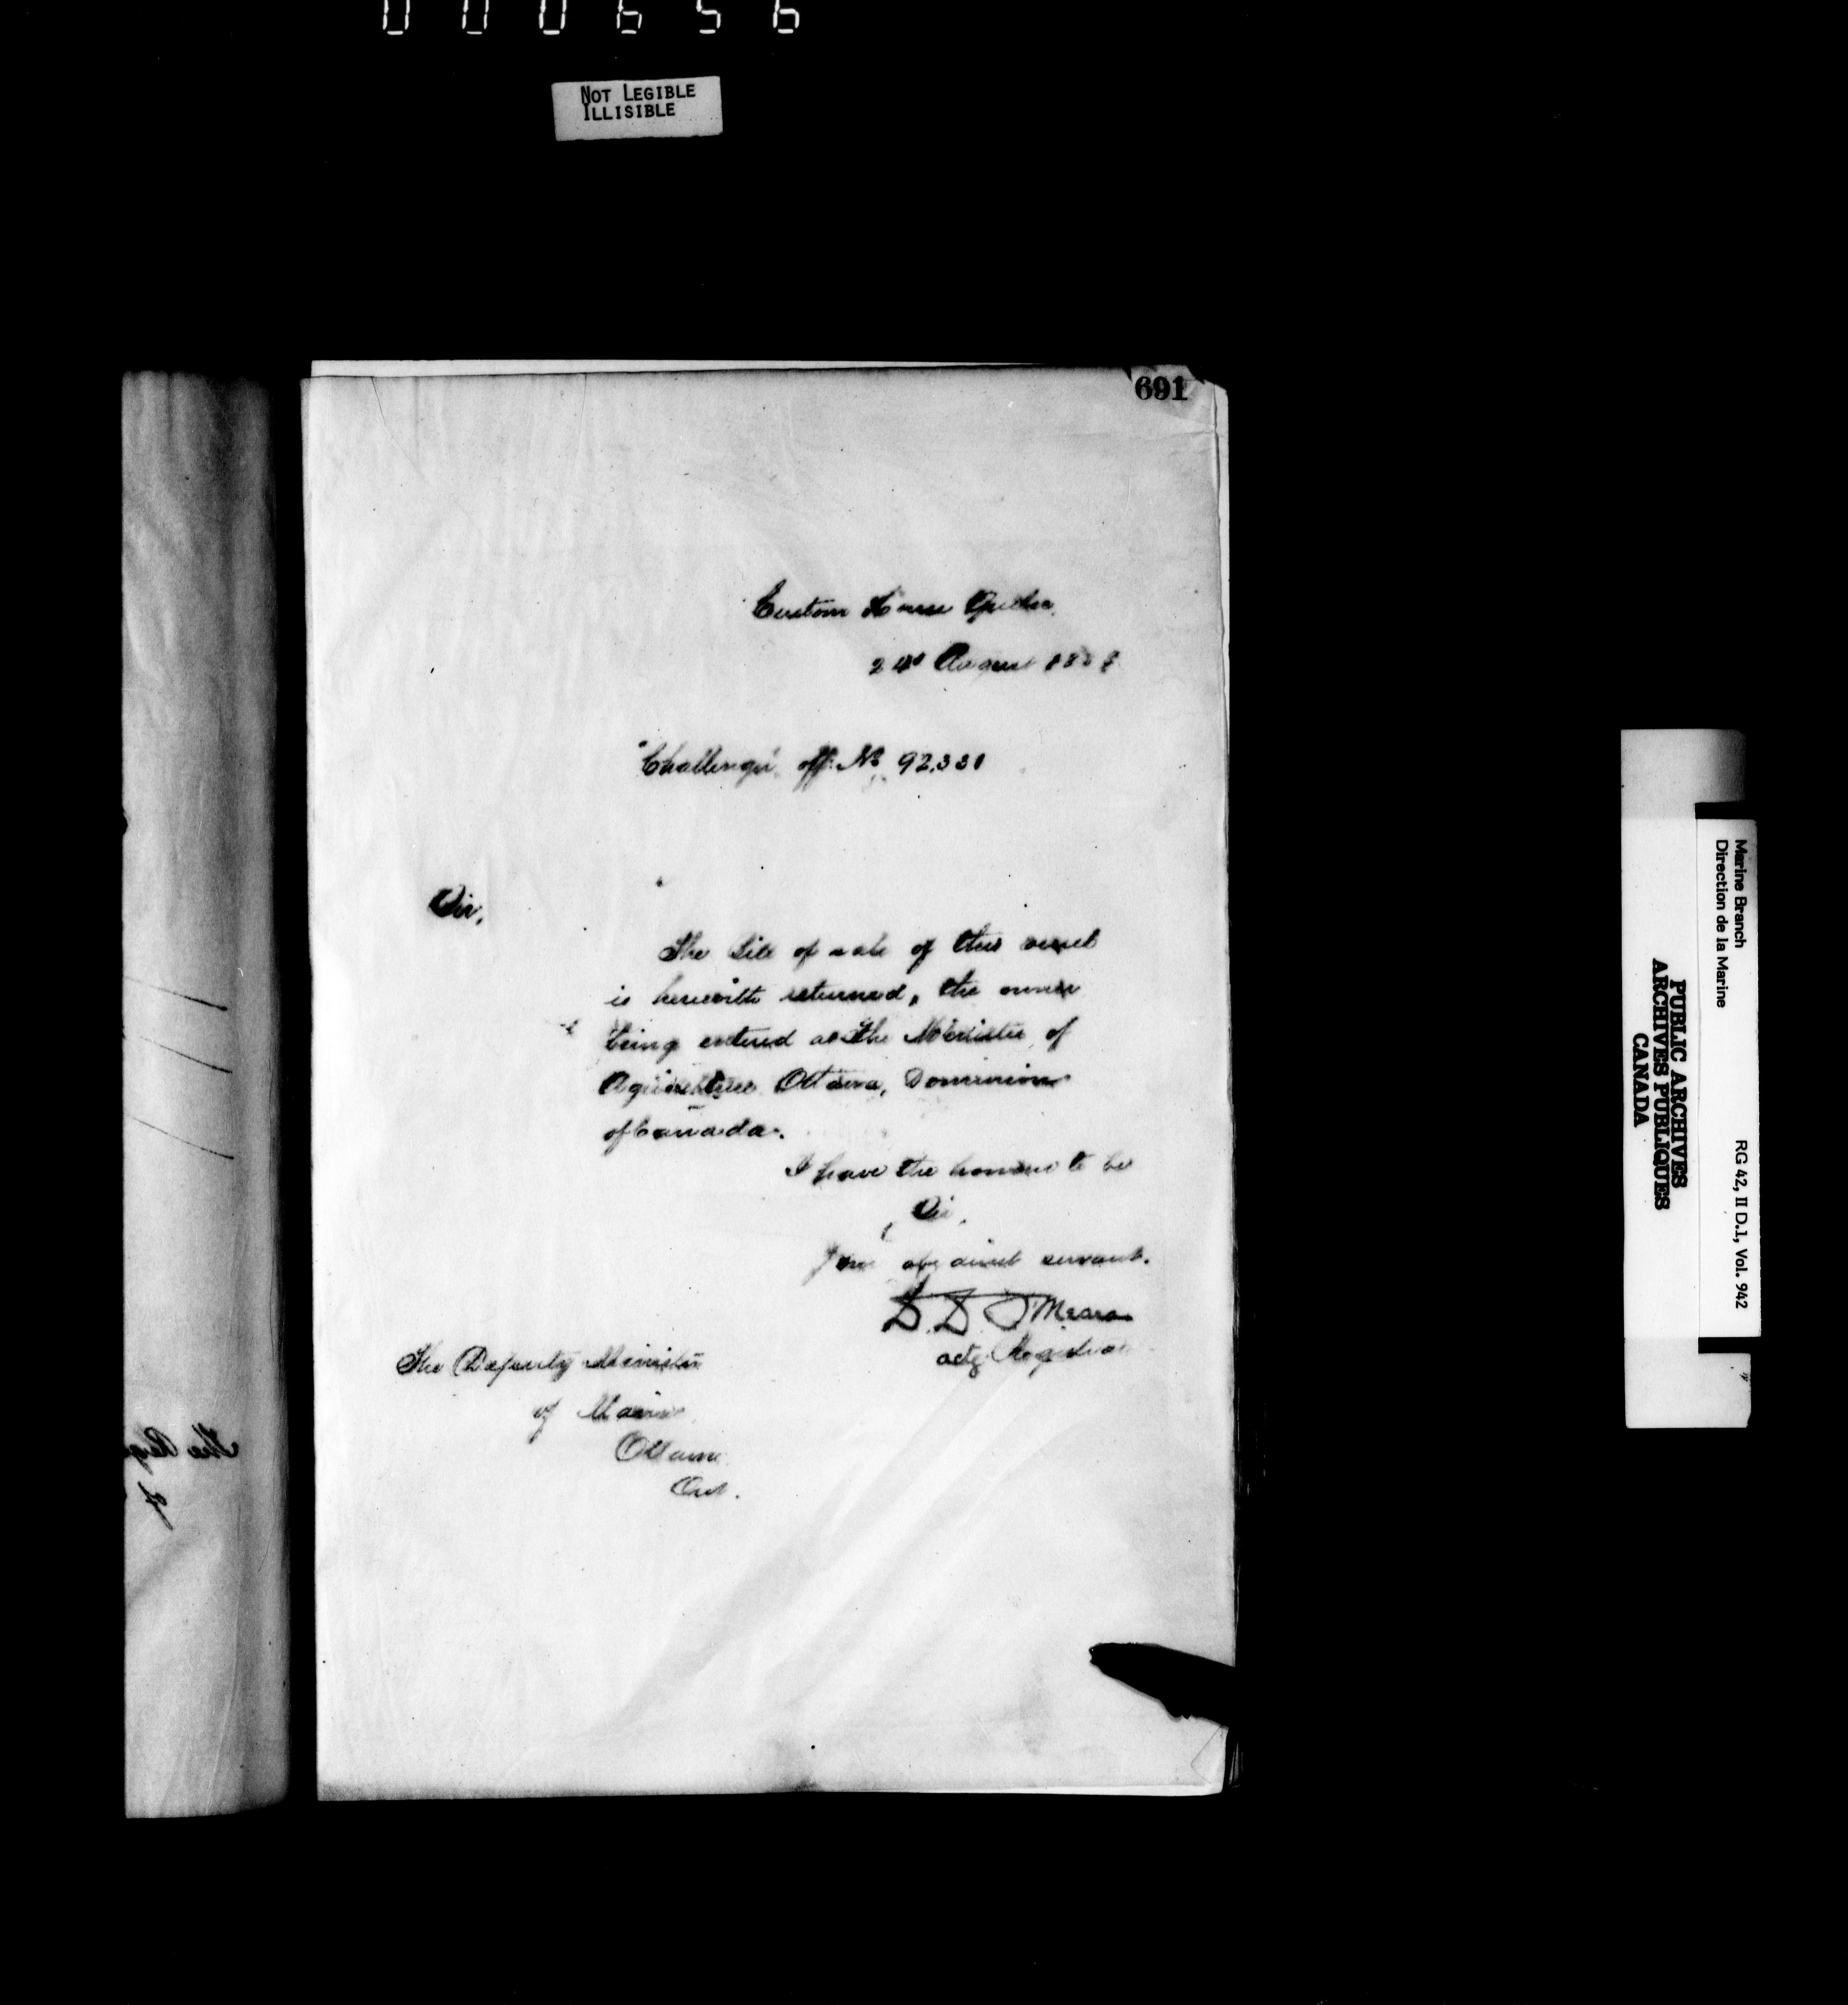 000656
NOT LEGIBLE
ILLISIBLE
691
Custom House Quebec
August
"Challenger" off. No 92.331
Sir,
The Bill of sale of this vessel
is herewith returned, the owner
being entered as The Minister of
Agriculture Ottawa, Dominion
of Canada.
I have the honour to be
Sir,
Your obedient servant.
D. D. O'Meara
actg. Registrar
The Deputy Minister
of Marine
Ottawa
Ont.
The
Marine Branch
Direction de la Marine
RG 42, II D.1, Vol. 942
PUBLIC ARCHIVES
ARCHIVES PUBLIQUES
CANADA